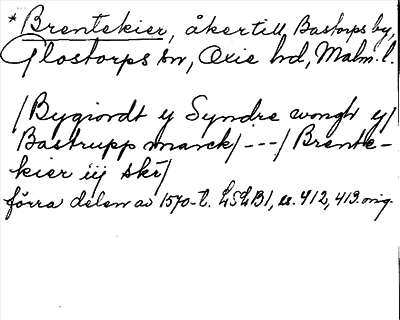 * Brentekier, åker till Bastorps by,
Glostorps sn, Oxie hd, Malm. l.
/Bygiordt y Syndre wongh y/
Bastrupp marck/---/Brente-
kier iij skr/
förra delen av 1570-t. LSLB1, s. 412, 413. orig.